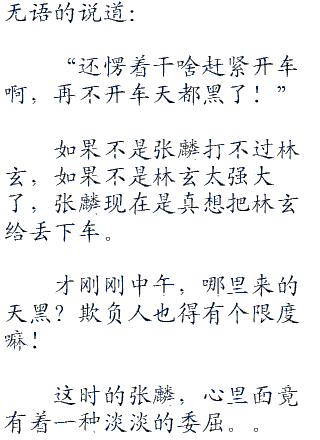 无语的说道：
“还愣着干啥赶紧开车
啊，再不开车天都黑了！”
如果不是张麟打不过林
玄，如果不是林玄太强大
了，张麟现在是真想把林玄
给丢下车。
才刚刚中午，哪里来的
天黑？欺负人也得有个限度
嘛！
这时的张麟，心里面竟
有着一种淡淡的委屈。。